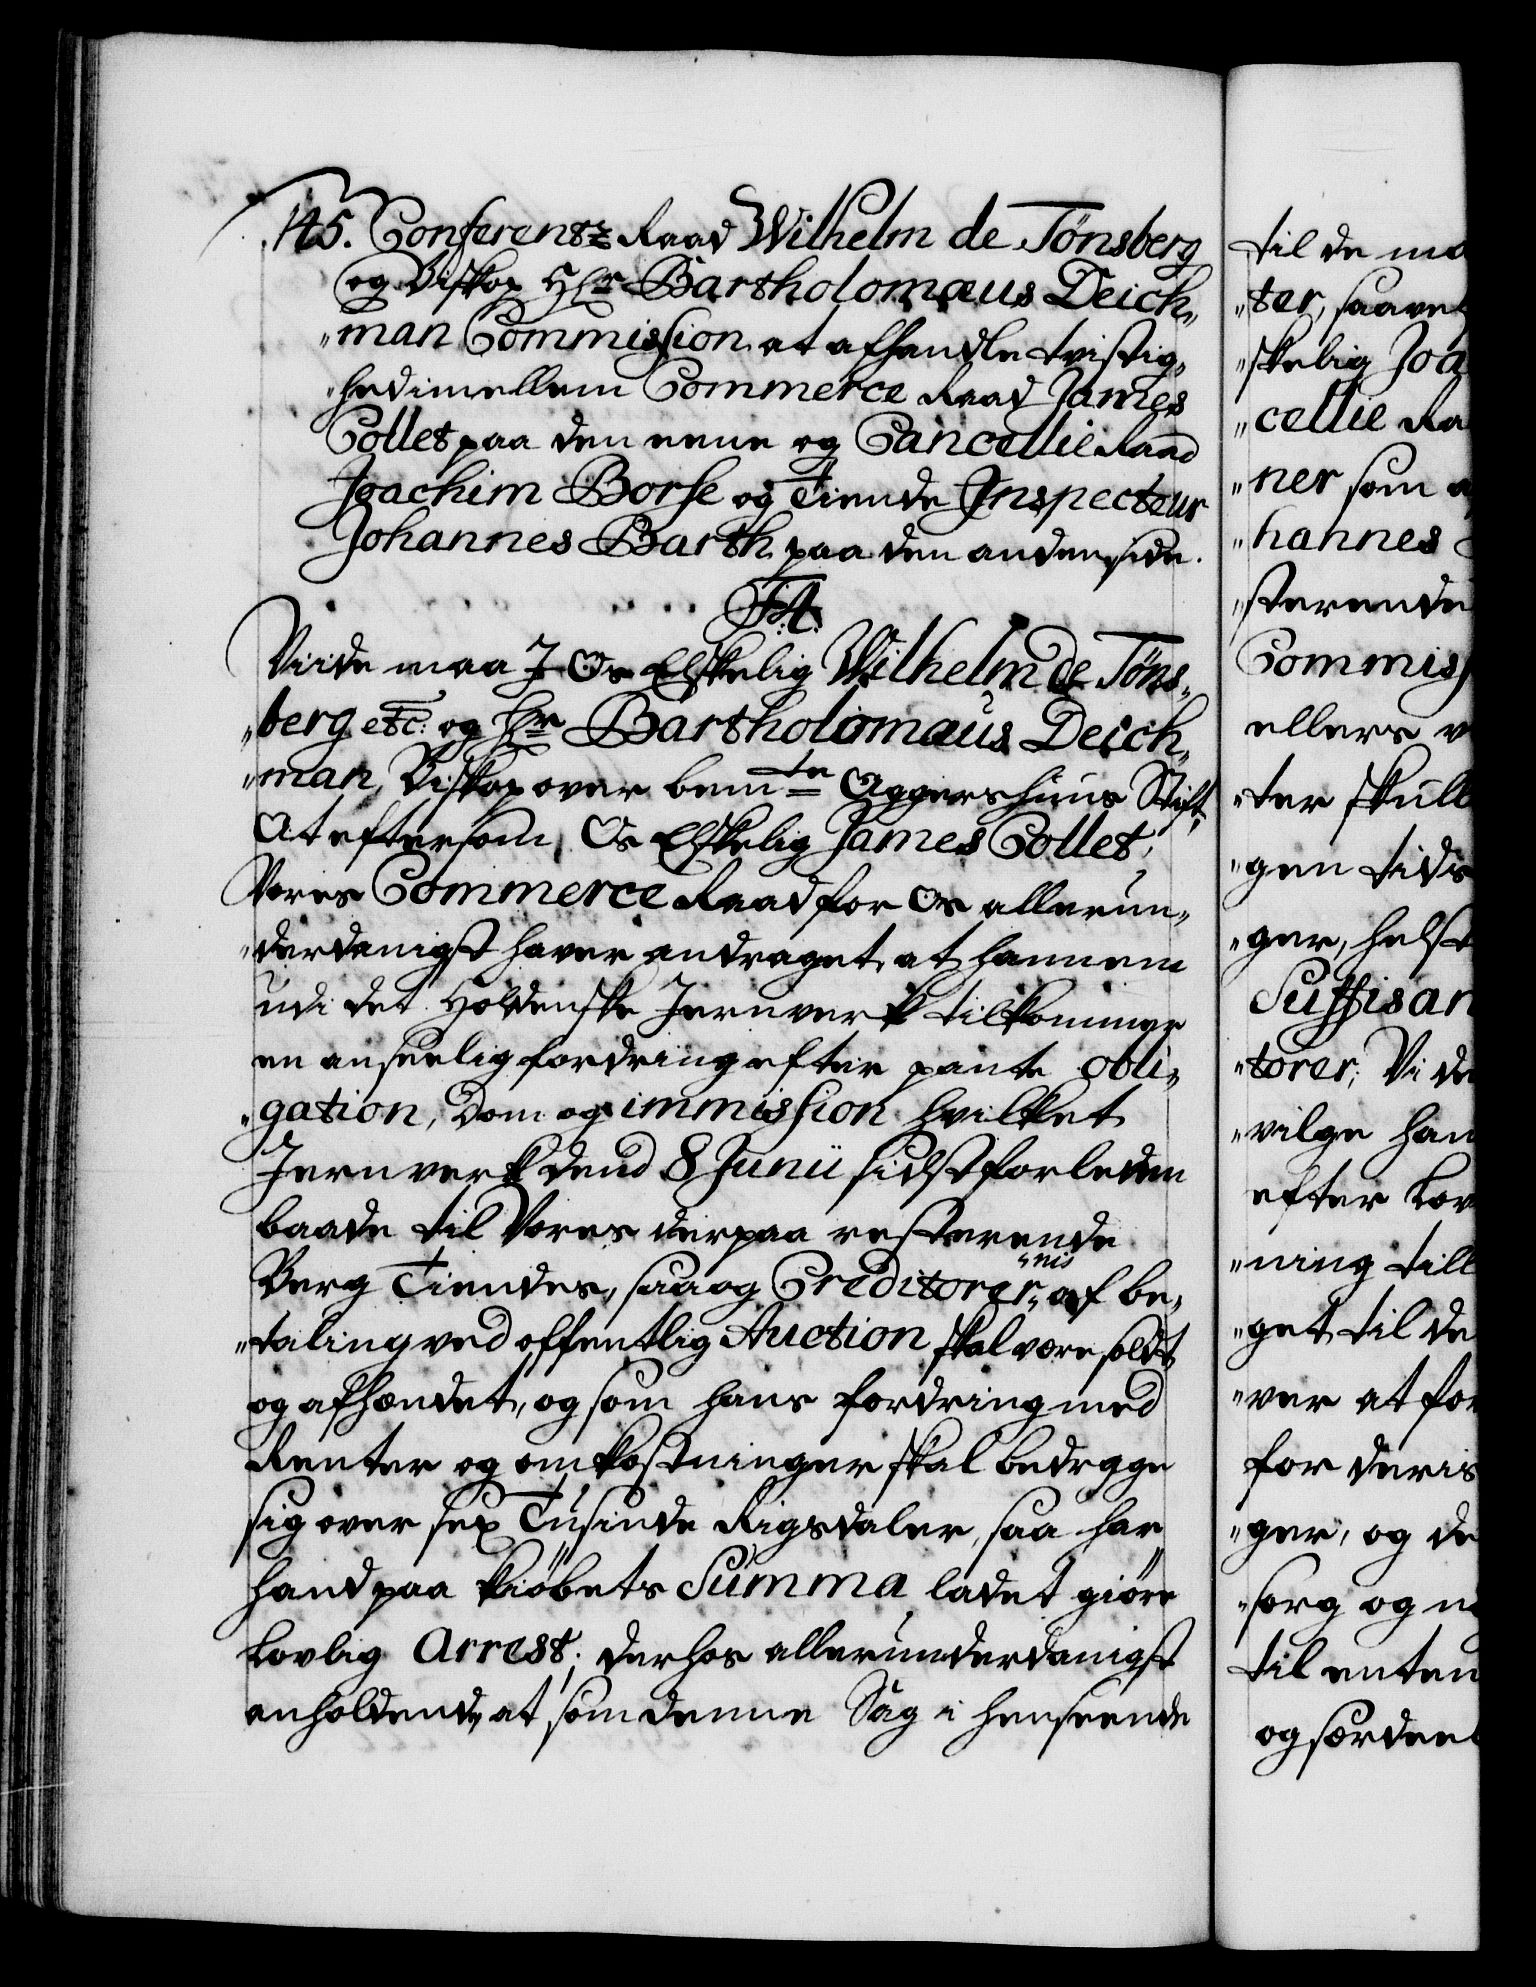 145. Conferentz Raad Wilhelm de Tönsberg
og Biskop Hr Bartholomæus Deich„
„man Commission at afhandle tvistig„
„hed imellem Commerce Raad James
Collet paa den eene og Cancellie Raad
Joachim Borse og Tiende Inspecteur
Johannes Barth paa den anden side.
F: 4.
Viide maa I Os Elskelig Wilhelm de Töns„
„berg etc: og Hr Bartholomæus Deich„
„man, Biskop over bemte Aggershuus Stift,
At eftersom Os Elskelig James Collet,
Vores Commerce Raad for Os allerun„
„derdanigst haver andraget, at hannem
udi det Holdenske Jernverk tilkommer
en anseelig fordring efter pante obli„
„gation, Dom og immission hvilket
Jernverk dend 8 Junii sidstforleden
baade til Vores derpaa resterende
Berg Tiendes, saa og Creditorer„
„nis
af be„
„taling ved offentlig Auction skal være soldt
og afhændet, og som hans fordring med
Renter og omkostninger skal bedrage
sig over sex Tusinde Rigsdaler, saa har
hand paa kiöbets Summa ladet giöre
Lovlig Arrest; derhos allerunderdanigst
anholdende, at som denne Sag i henseende
til de ma
„ter, saavel
„skelig Joa
„cellie Ra
„ner som
„hannes
„sterende
Commis
ellers
„ter skull
„gen tids
„ger, helst
Suffisan
„torer; Vi de
„vilge han
efter Lov
„ning till
„get til de
„ver at for
for deris
„ger, og de
sorg og
til enten
og særdeel